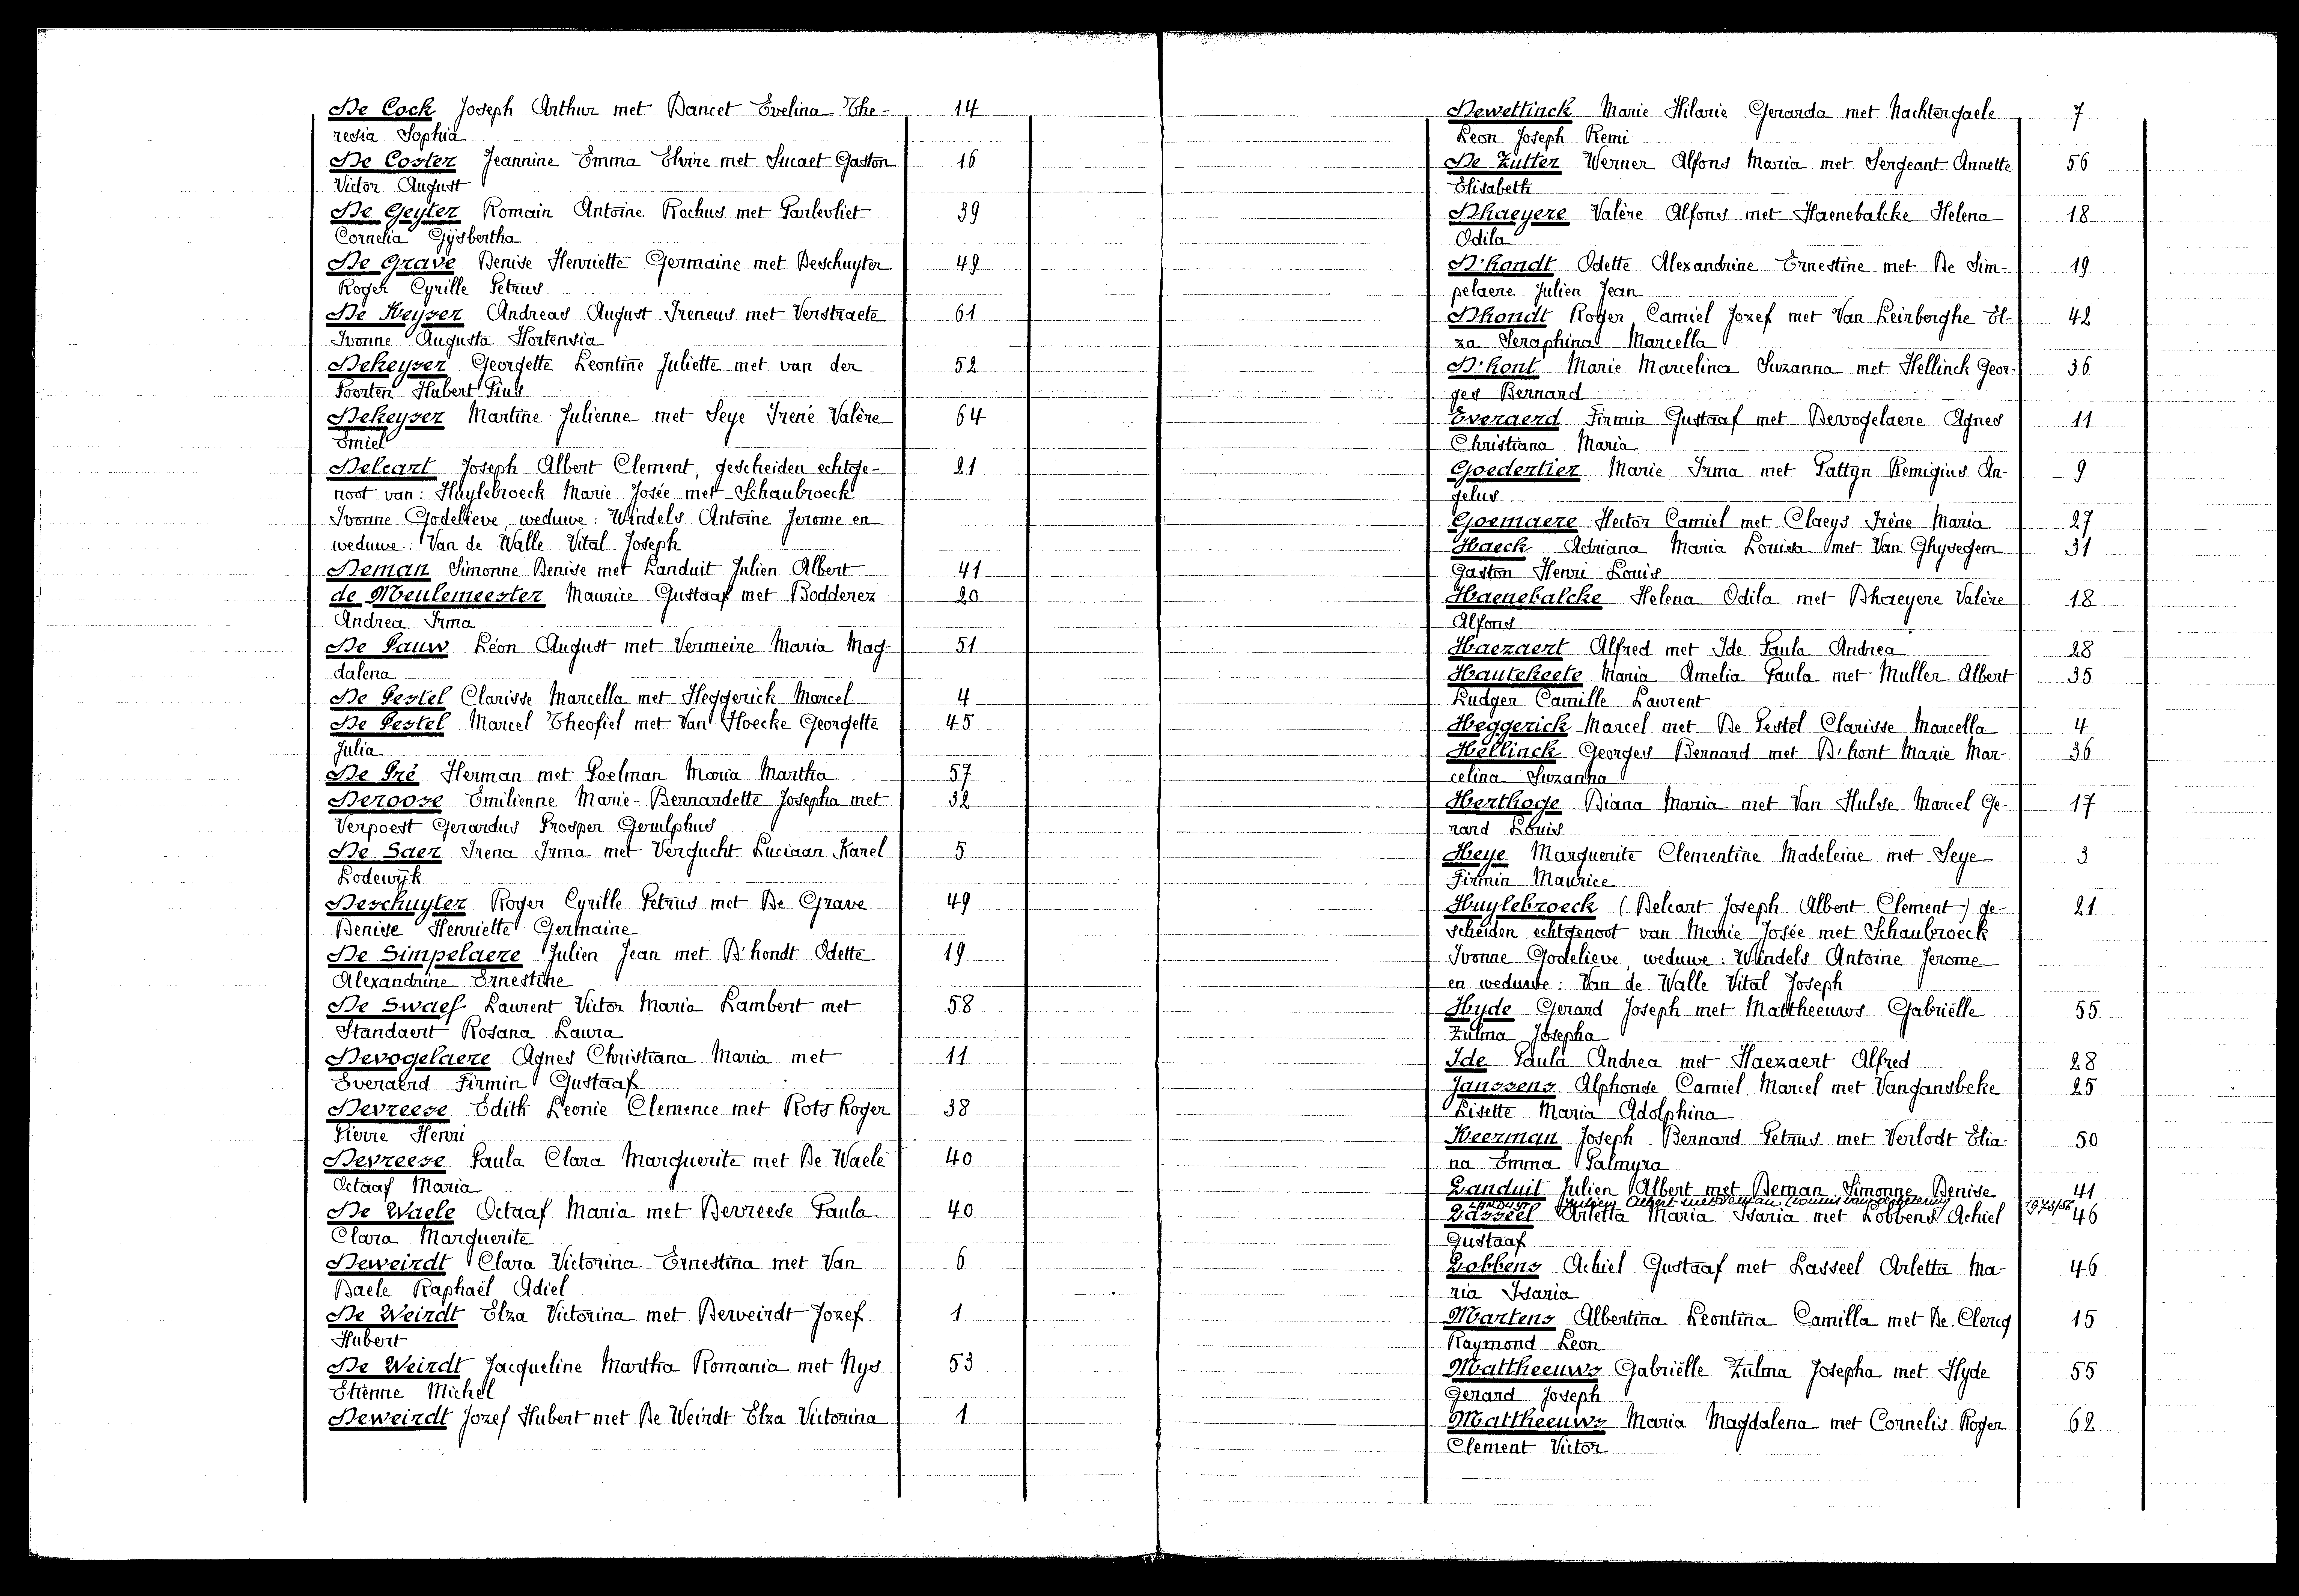 De Cock Joseph Arthur met Dancet Evelina The- 14
resia Sophia
De Coster Jeannine Emma Elvire met Sucaet Gaston 16
Victor August
De Geyter Romain Antoine Rochus met Parlevliet 39
Cornelia Gijsbertha
De Grave Denise Henriette Germaine met Deschuyter 49
Roger Cyrille Petrus
De Keyser Andreas August Ireneus met Verstraete 61
Ivonne Augusta Hortensia
Dekeyser Georgette Leontine Juliette met van der 52
Poorten Hubert Pius
Dekeyser Martine Julienne met Seye Irené Valère 64
Emiel
Delcart Joseph Albert Clement, gescheiden echtge- 21
noot van: Huylebroeck Marie Josée met Schaubroeck
Ivonne Godelieve, weduwe: Windels Antoine Jerome en
weduwe: Van de Walle Vital Joseph
Deman Simonne Denise met Landuit Julien Albert 41
de Meulemeester Maurice Gustaaf met Bodderez 20
Andrea Irma
De Pauw Léon August met Vermeire Maria Mag- 51
dalena
De Pestel Clarisse Marcella met Heggerick Marcel 4
De Pestel Marcel Theofiel met Van Hoecke Georgette 45
Julia
De Pré Herman met Poelman Maria Martha 57
Deroose Emilienne Marie-Bernardette Josepha met 32
Verpoest Gerardus Prosper Gerulphus
De Saer Irena Irma met Vergucht Luciaan Karel 5
Lodewijk
Deschuyter Roger Cyrille Petrus met De Grave 49
Denise Henriette Germaine
De Simpelaere Julien Jean met D'hondt Odette 19
Alexandrine Ernestine
De Swaef Laurent Victor Maria Lambert met 58
Standaert Rosana Laura
Devogelaere Agnes Christiana Maria met 11
Everaerd Firmin Gustaaf
Devreese Edith Leonie Clemence met Rots Roger 38
Pierre Henri
Devreese Paula Clara Marguerite met De Waele 40
Octaaf Maria
De Waele Octaaf Maria met Devreese Paula 40
Clara Marguerite
Deweirdt Clara Victorina Ernestina met Van 6
Daele Raphaël Adiel
De Weirdt Elza Victorina met Deweirdt Jozef 1
Hubert
De Weirdt Jacqueline Martha Romania met Nys 53
Etienne Michel
Deweirdt Jozef Hubert met De Weirdt Elza Victorina 1
Dewettinck Marie Hilarie Gerarda met Nachtergaele 7
Leon Joseph Remi
De Zutter Werner Alfons Maria met Sergeant Annette 56
Elisabeth
Dhaeyere Valère Alfons met Haenebalcke Helena 18
Odila
D'hondt Odette Alexandrine Ernestine met De Sim- 19
pelaere Julien Jean
Dhondt Roger Camiel Jozef met Van Leirberghe El- 42
za Seraphina Marcella
D'hont Marie Marcelina Suzanna met Hellinck Geor- 36
ges Bernard
Everaerd Firmin Gustaaf met Devogelaere Agnes 11
Christiana Maria
Goedertier Marie Irma met Pattyn Remigius An- 9
gelus
Goemaere Hector Camiel met Claeys Irène Maria 27
Haeck Adriana Maria Louisa met Van Ghysegem 31
Gaston Henri Louis
Haenebalcke Helena Odila met Dhaeyere Valère 18
Alfons
Haezaert Alfred met Ide Paula Andrea 28
Hautekeete Maria Amelia Paula met Muller Albert 35
Ludger Camille Laurent
Heggerick Marcel met De Pestel Clarisse Marcella 4
Hellinck Georges Bernard met D'hont Marie Mar- 36
celina Suzanna
Herthoge Diana Maria met Van Hulse Marcel Ge- 17
rard Louis
Heye Marguerite Clementine Madeleine met Seye 3
Firmin Maurice
Huylebroeck (Delcart Joseph Albert Clement) ge- 21
scheiden echtgenoot van Marie Josée met Schaubroeck
Ivonne Godelieve, weduwe: Windels Antoine Jerome
en weduwe: Van de Walle Vital Joseph
Hyde Gerard Joseph met Mattheeuws Gabriëlle 55
Zulma Josepha
Ide Paula Andrea met Haezaert Alfred 28
Janssens Alphonse Camiel Marcel met Vangansbeke 25
Lisette Maria Adolphina
Keerman Joseph Bernard Petrus met Verlodt Elia- 50
na Emma Palmyra
Landuit Julien Albert met Deman Simonne Denise 41
Landuyt Julien Albert met Deman (vonnis van verbetering 1973/56
Lasseel Arletta Maria Isaria met Lobbens Achiel 46
Gustaaf
Lobbens Achiel Gustaaf met Lasseel Arletta Ma- 46
ria Isaria
Martens Albertina Leontina Camilla met De Clercq 15
Raymond Leon
Mattheeuws Gabriëlle Zulma Josepha met Hyde 55
Gerard Joseph
Mattheeuws Maria Magdalena met Cornelis Roger 62
Clement Victor